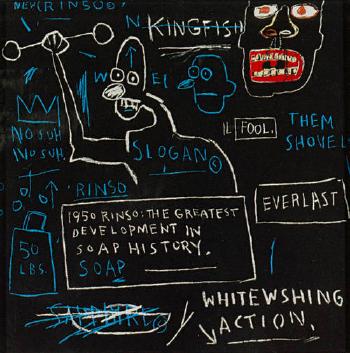 NEW(RINSO)
N
KINGFISH
W EI
NO SUH
NO SUH.
IL FOOL.
THEM
SHOVEL
SLOGAN ©
RINSO
50
LBS.
1950 RINSO: THE GREATEST
DEVELOPMENT IN
SOAP HISTORY.
SOAP
EVERLAST
WHITEWSHING
ACTION.